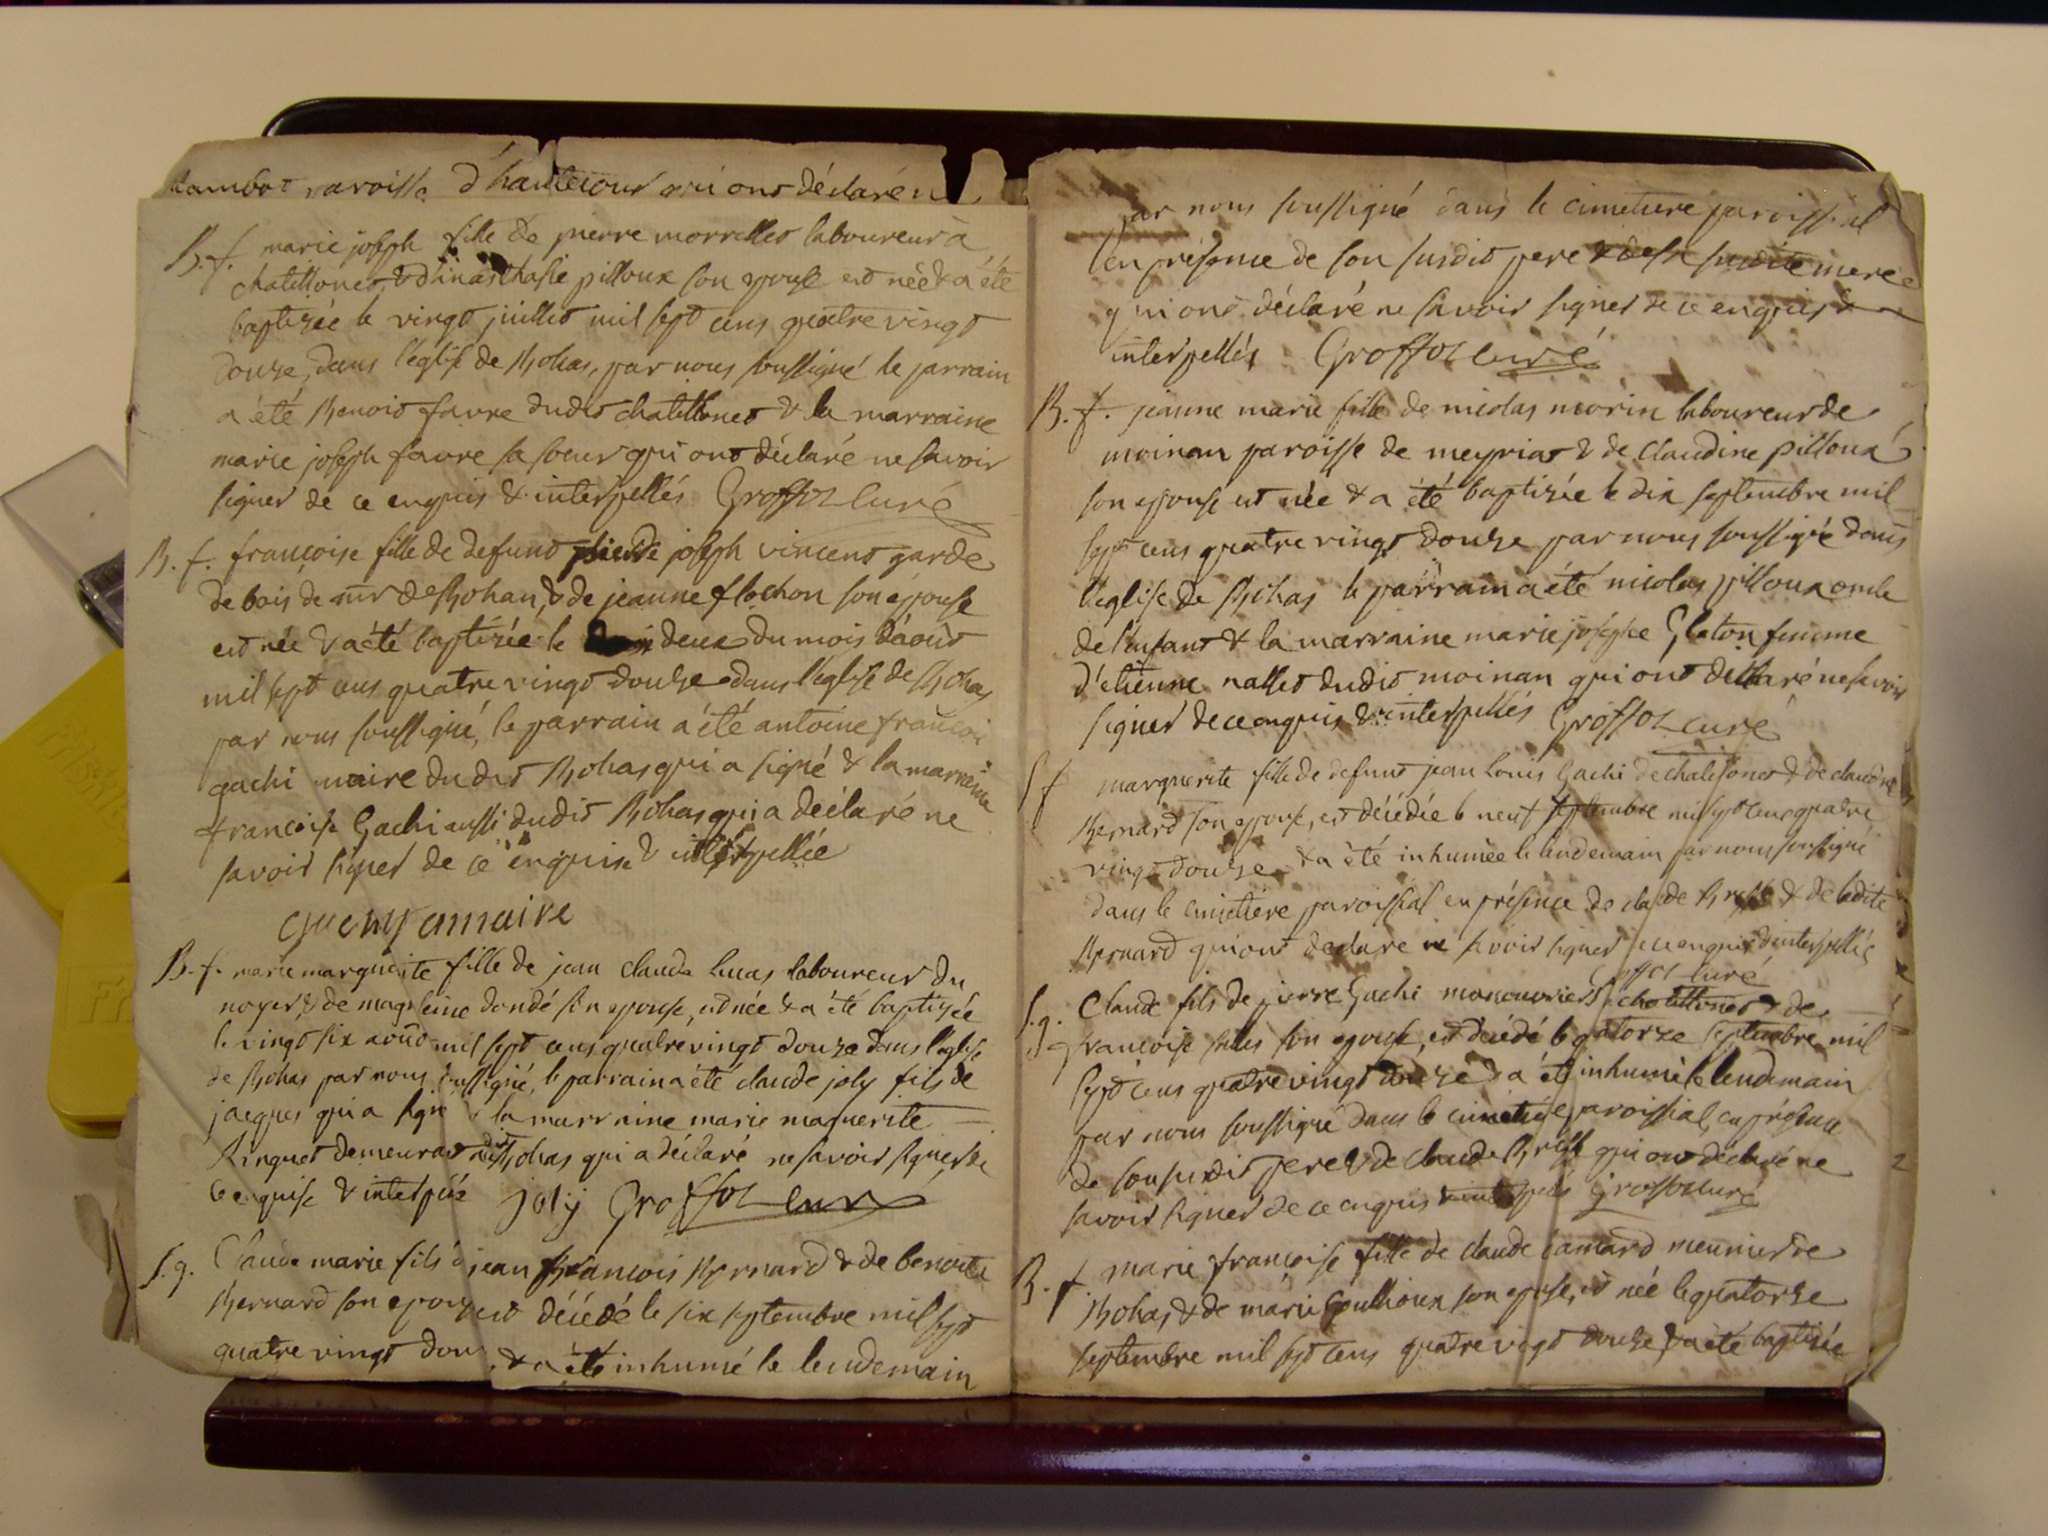 paroisse d'hautecour qui ont déclaré n
B. f. marie joseph fille de pierre morrellet laboureur à
chatillonet, & d'anasthasie pilloux son epouse est née & a été
baptisée le vingt juillet mil sept cens quatre vingt
douze, dans l'église de Bohas, par nous soussigné le parrain
a été Benoit favre dudit chatillonet & la marraine
marie joseph favre sa soeur qui ont déclaré ne savoir
signer de ce enquis & interpellés Groffoz curé
B. f. francoise fille de defunt joseph vincent garde
de bois de mr de Rohan, & de jeanne flochon son épouse
est née & a été baptisée le deux du mois d'aout
mil sept cens quatre vingt douze dans l'église de Bohas
par nous soussigné, le parrain a été antoine françoi
gachi maire dudit Bohas qui a signé & la marraine
francoise Gachi aussi dudit Bohas qui a déclaré ne
savoir signer de ce enquise & interpellée
maire
B. f. marie marguerite fille de jean claude lucas laboureur du
noyer, & de magdeleine dondé son epouse, est née & a été baptisée
le vingt six aout mil sept cens quatre vingt douze dans l'eglise
de Bohas par nous soussigné, le parrain a été claude joly fils de
jacques qui a signé & la marraine marie maguerite
Ringuet demeurant audit Bohas qui a déclaré ne savoir signer de
ce enquise & interpellée joly Groffoz curé
S. g. Claude marie fils d jean francois Bernard & de benoite
Bernard son epouse est décédé le six septembre mil sept
quatre vingt dou & a été inhumé le lendemain
par nous soussigné dans le cimetiere paroissial
en présence de son susdit pere & de sa susdite mere
qui ont déclaré ne savoir signer de ce enquis &
interpellés Groffoz curé
B. f. jeanne marie fille de nicolas morin laboureur de
moinan paroisse de meyriat & de claudine pilloux
son epouse est née & a été baptisée le dix septembre mil
sept cens quatre vingt douze par nous soussigné dans
l'église de Bohas le parrain a été nicolas pilloux oncle
de l'enfant & la marraine marie josephe Glaton femme
d'etienne nallet dudit moinan qui ont déclaré ne savoir
signer de ce enquis & interpellés Groffoz curé
S f marguerite fille de defunt jean louis Gachi de chatillonet & de claudine
Bernard son epouse, est décédée le neuf septembre mil sept cens quatre
vingt douze & a été inhumée le lendemain par nous soussigné
dans le cimetiere paroissial en présence de claude & de ladite
Bernard qui ont declaré ne savoir signer de ce enquis & interpellés
Groffoz curé
S. g. Claude fils de pierre Gachi manouvrier à chatillonet & de
francoise son epouse, est décédé le quatorze septembre mil
sept cens quatre vingt douze & a été inhumé le lendemain
par nous soussigné dans le cimetiere paroissial, en présence
de son susdit pere & de claude qui ont déclaré ne
savoir signer de ce enquis & interpellés Groffoz curé
B. f. marie francoise fille de claude camard meunier de
Bohas, & de marie son epouse, est née le quatorze
septembre mil sept cens quatre vingt douze & a été baptisée